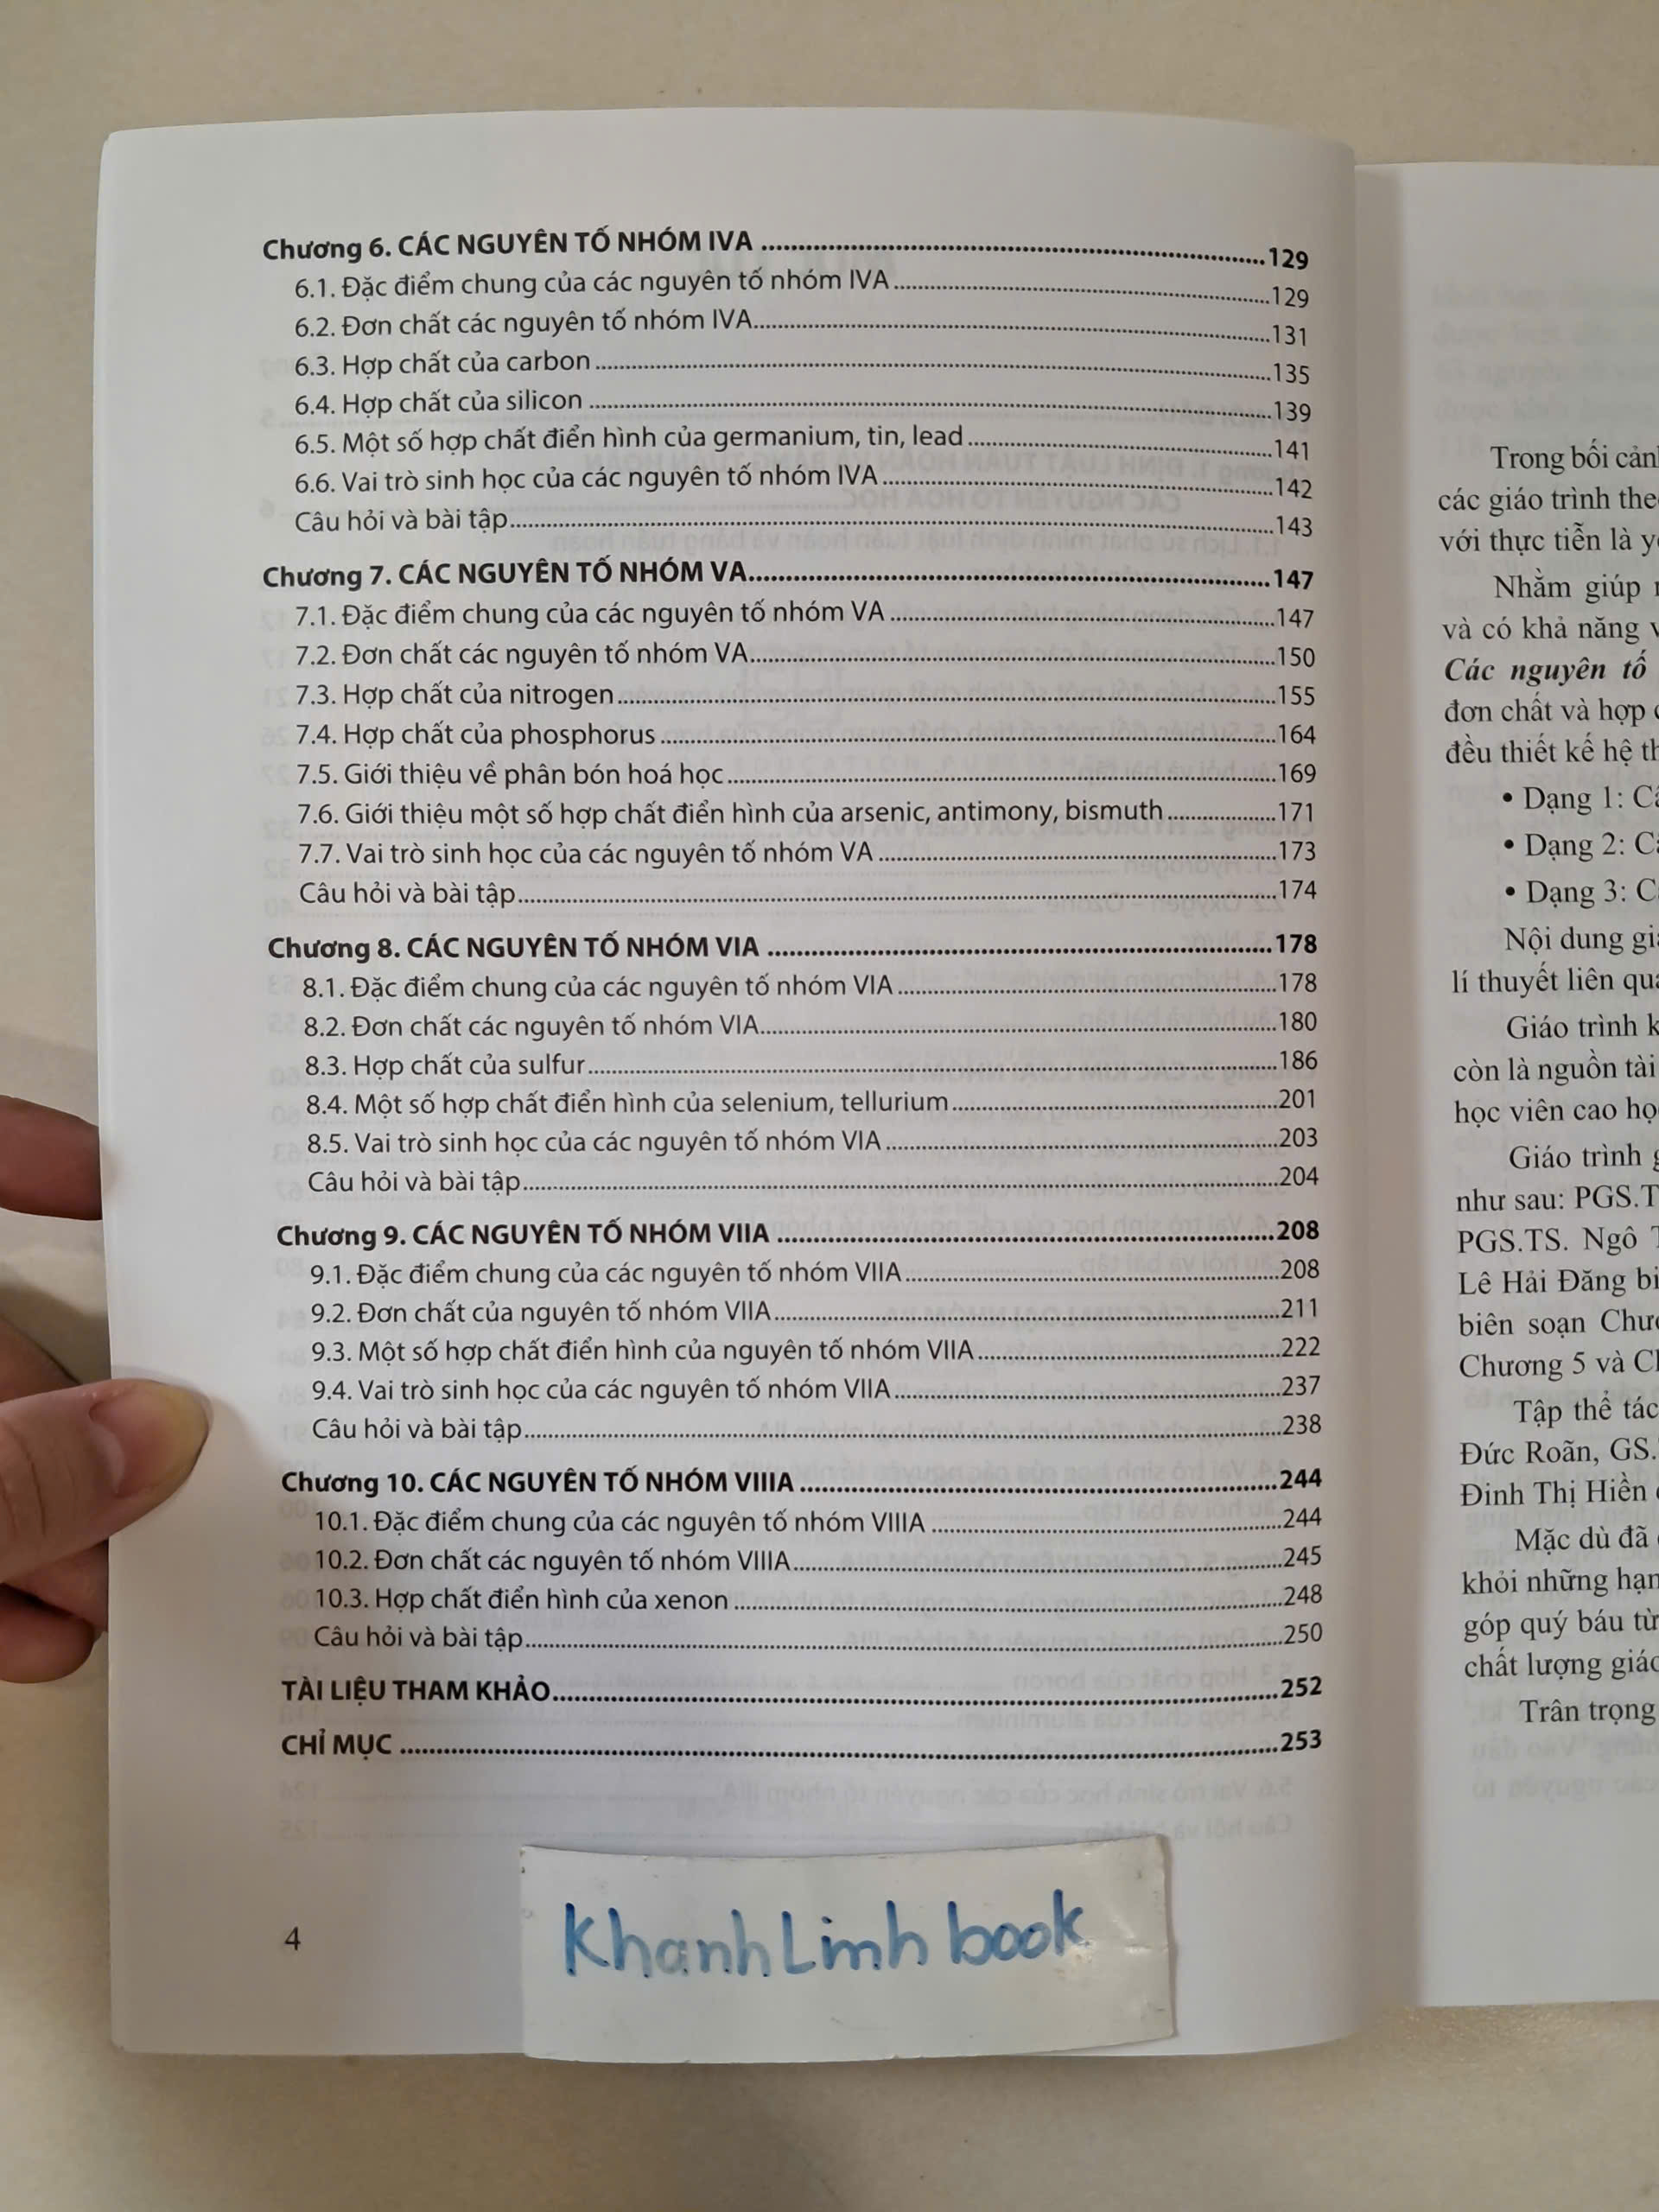 Chương 6. CÁC NGUYÊN TỐ NHÓM IVA ........ 129
6.1. Đặc điểm chung của các nguyên tố nhóm IVA ........ 129
6.2. Đơn chất các nguyên tố nhóm IVA ........ 131
6.3. Hợp chất của carbon ........ 135
6.4. Hợp chất của silicon ........ 139
6.5. Một số hợp chất điển hình của germanium, tin, lead ........ 141
6.6. Vai trò sinh học của các nguyên tố nhóm IVA ........ 142
Câu hỏi và bài tập ........ 143
Chương 7. CÁC NGUYÊN TỐ NHÓM VA ........ 147
7.1. Đặc điểm chung của các nguyên tố nhóm VA ........ 147
7.2. Đơn chất các nguyên tố nhóm VA ........ 150
7.3. Hợp chất của nitrogen ........ 155
7.4. Hợp chất của phosphorus ........ 164
7.5. Giới thiệu về phân bón hoá học ........ 169
7.6. Giới thiệu một số hợp chất điển hình của arsenic, antimony, bismuth ........ 171
7.7. Vai trò sinh học của các nguyên tố nhóm VA ........ 173
Câu hỏi và bài tập ........ 174
Chương 8. CÁC NGUYÊN TỐ NHÓM VIA ........ 178
8.1. Đặc điểm chung của các nguyên tố nhóm VIA ........ 178
8.2. Đơn chất các nguyên tố nhóm VIA ........ 180
8.3. Hợp chất của sulfur ........ 186
8.4. Một số hợp chất điển hình của selenium, tellurium ........ 201
8.5. Vai trò sinh học của các nguyên tố nhóm VIA ........ 203
Câu hỏi và bài tập ........ 204
Chương 9. CÁC NGUYÊN TỐ NHÓM VIIA ........ 208
9.1. Đặc điểm chung của các nguyên tố nhóm VIIA ........ 208
9.2. Đơn chất của nguyên tố nhóm VIIA ........ 211
9.3. Một số hợp chất điển hình của nguyên tố nhóm VIIA ........ 222
9.4. Vai trò sinh học của các nguyên tố nhóm VIIA ........ 237
Câu hỏi và bài tập ........ 238
Chương 10. CÁC NGUYÊN TỐ NHÓM VIIIA ........ 244
10.1. Đặc điểm chung của các nguyên tố nhóm VIIIA ........ 244
10.2. Đơn chất các nguyên tố nhóm VIIIA ........ 245
10.3. Hợp chất điển hình của xenon ........ 248
Câu hỏi và bài tập ........ 250
TÀI LIỆU THAM KHẢO ........ 252
CHỈ MỤC ........ 253
4
Khanh Linh book
Trong bối cảnh
các giáo trình
với thực tiễn là
Nhằm giúp
và có khả năng
Các nguyên tố
đơn chất và hợp
đều thiết kế hệ
• Dạng 1:
• Dạng 2:
• Dạng 3:
Nội dung
lí thuyết liên
Giáo trình
còn là nguồn tài
học viên cao
Giáo trình
như sau:
PGS.TS. Ngô
Lê Hải Đăng
biên soạn
Chương 5 và
Tập thể
Đức Roãn,
Đinh Thị Hiền
Mặc dù đã
khỏi những
góp quý báu từ
chất lượng
Trân trọng